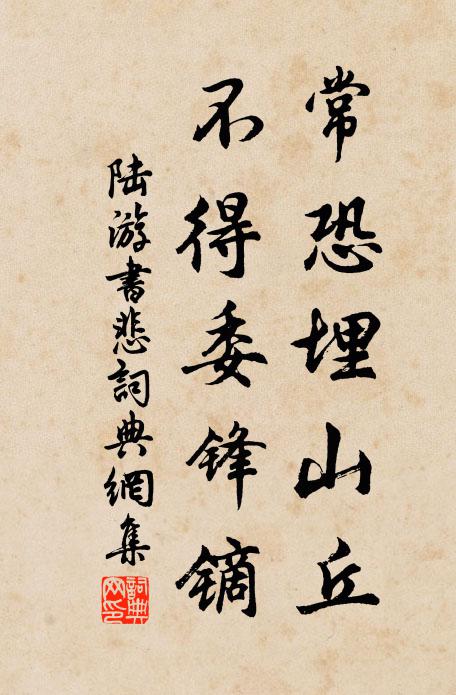 常恐埋山丘
不得委锋镝
陆游书悲词典網集
詞典网印